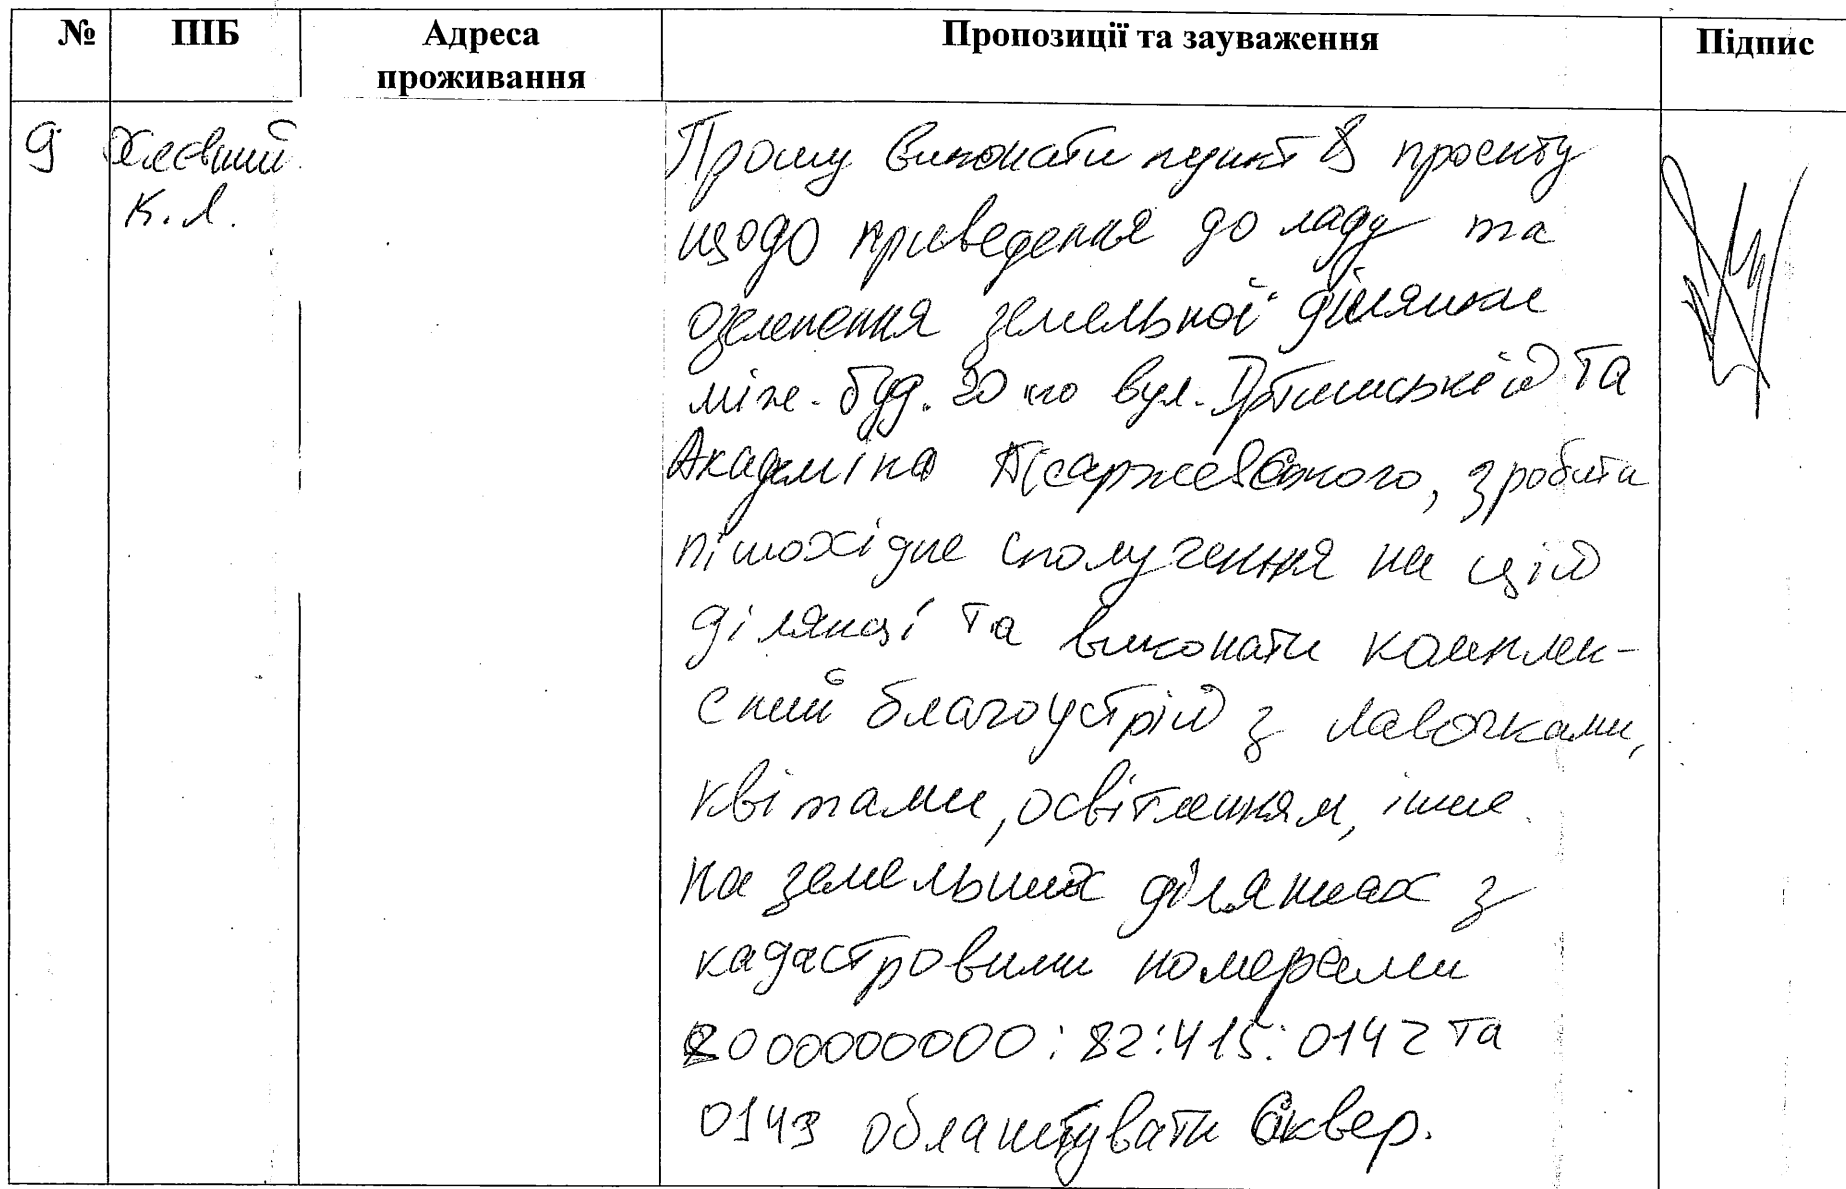 № ПІБ Адреса проживання Пропозиції та зауваження Підпис
9 Хлєвний К.Л.
Прошу виконати пункт 8 проєкту
щодо приведення до ладу та
озеленення земельної ділянки
між буд. 20 по вул. та
Академіка Писаржевського, зробити
пішохідне сполучення на цій
ділянці та виконати комплек-
сний благоустрій з лавочками,
квітами, освітленням, інше
на земельних ділянках з
кадастровими номерами
8000000000:82:415:0142 та
0143 облаштувати сквер.